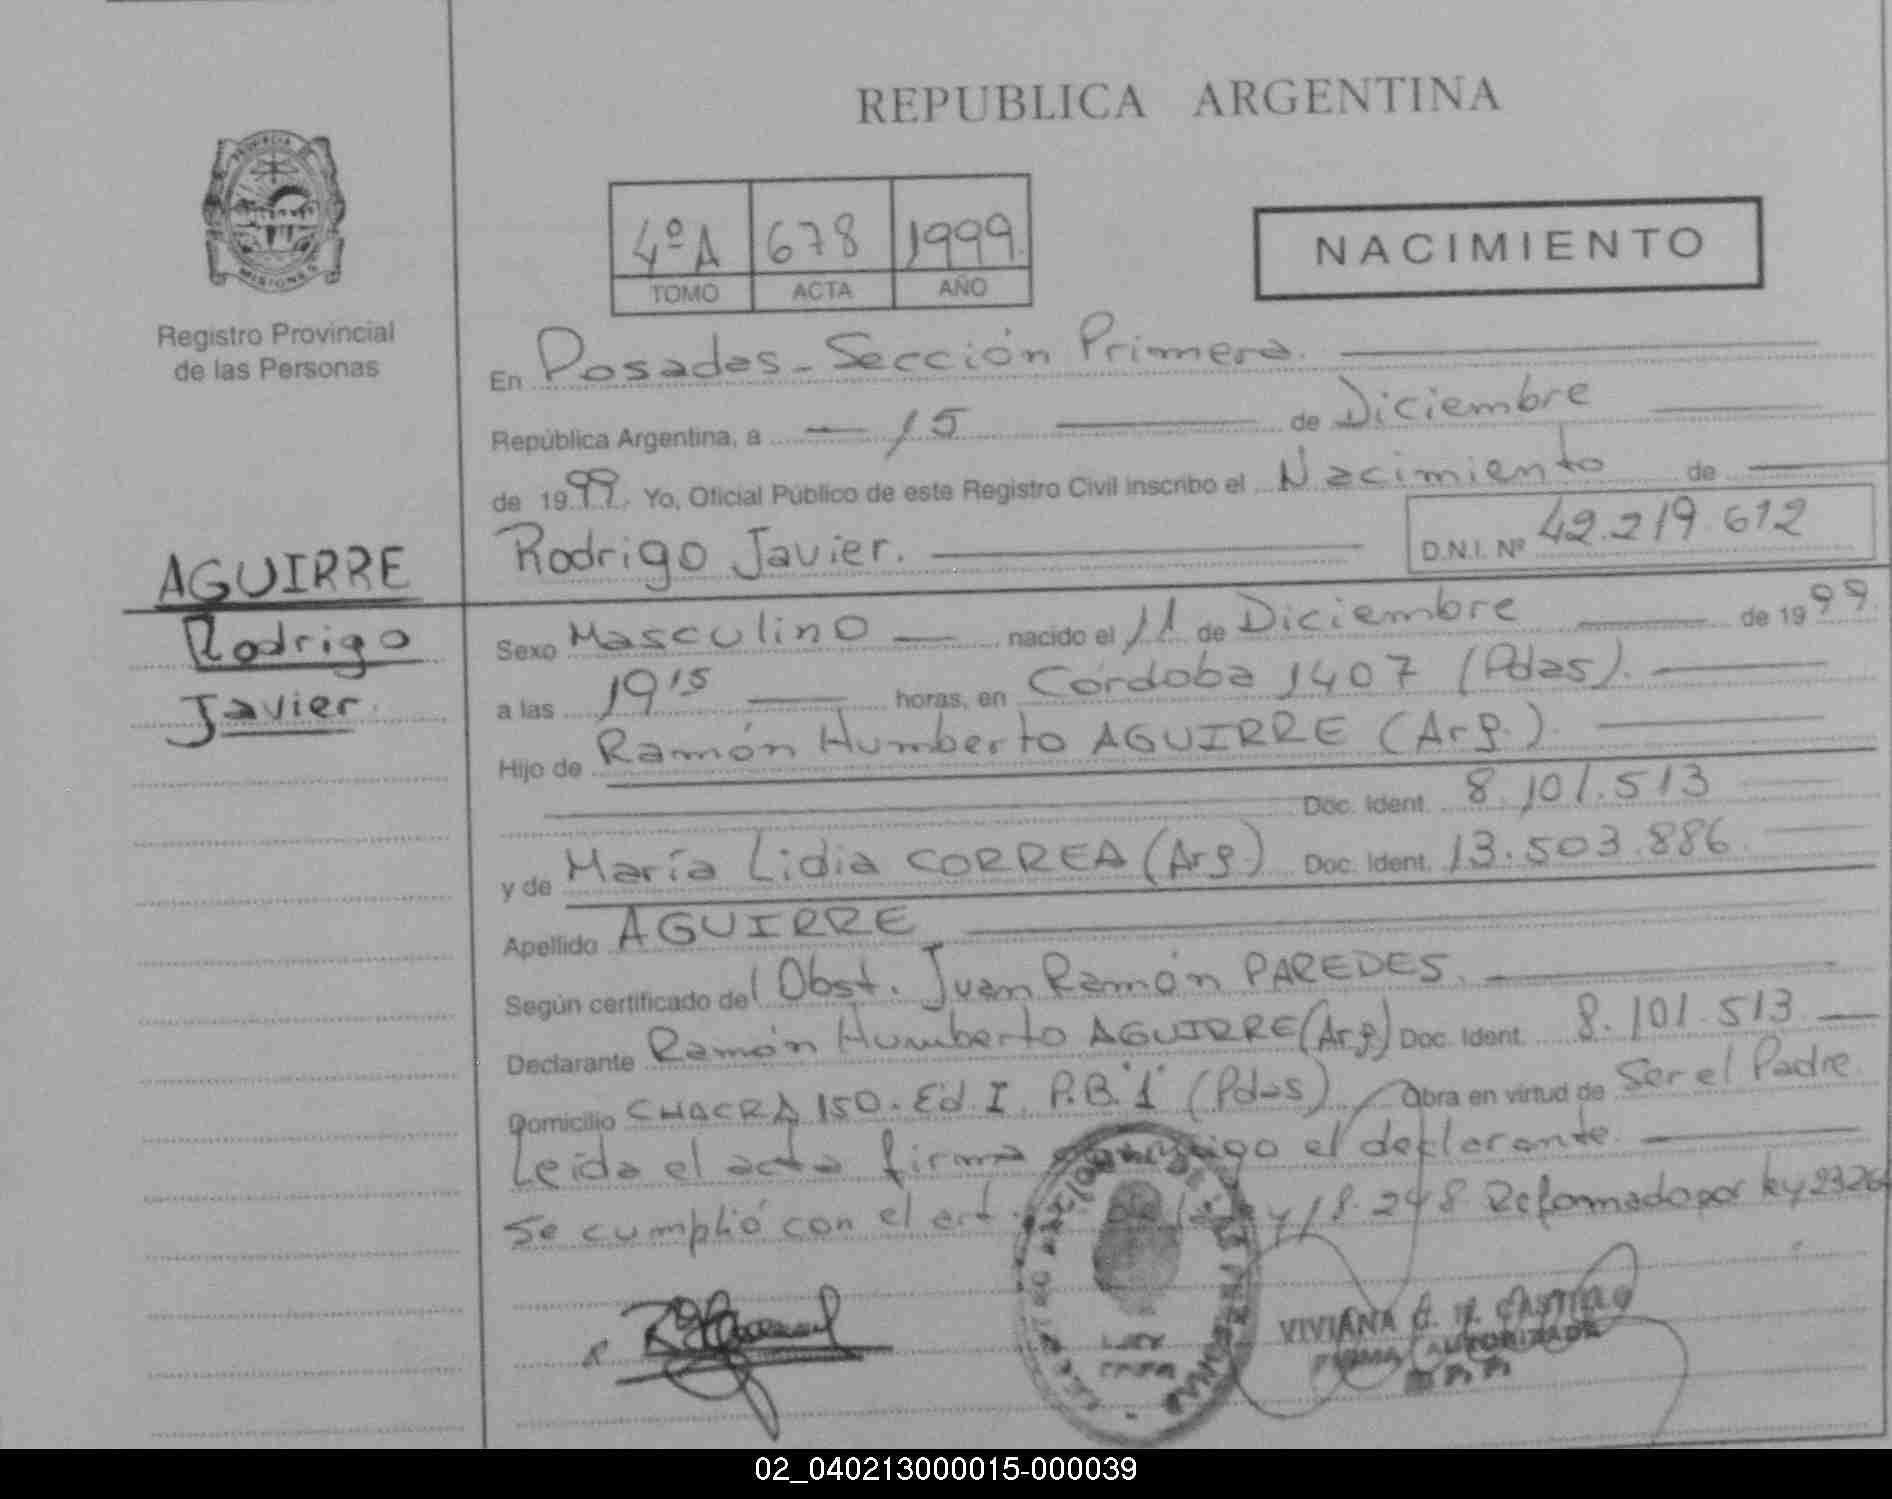 REPUBLICA ARGENTINA
PROVINCIA DE
MISIONES
Registro Provincial
de las Personas
4ºA 678 1999
TOMO ACTA AÑO
NACIMIENTO
En Posadas - Sección Primera.
República Argentina, a — 15 — de Diciembre
de 1999. Yo, Oficial Público de este Registro Civil inscribo el Nacimiento de
Rodrigo Javier. D.N.I. Nº 42.219.612
AGUIRRE
Rodrigo
Javier.
Sexo Masculino — nacido el 11 de Diciembre de 1999.
a las 19 15 — horas, en Córdoba 1407 (Pdas).
Hijo de Ramón Humberto AGUIRRE (Arg.).
Doc. Ident. 8.101.513
y de María Lidia CORREA (Arg.) Doc. Ident. 13.503.886
Apellido AGUIRRE
Según certificado del Obst. Juan Ramón PAREDES.
Declarante Ramón Humberto AGUIRRE (Arg) Doc. Ident. 8.101.513
Domicilio CHACRA 150. Ed. I P.B. "1" (Pdas) Obra en virtud de Ser el Padre.
Leída el acta firma conmigo el declarante.
Se cumplió con el art. Ley 18.248 Reformado por Ley 2326
VIVIANA CASTILLO
FIRMA AUTORIZADA
02_040213000015-000039